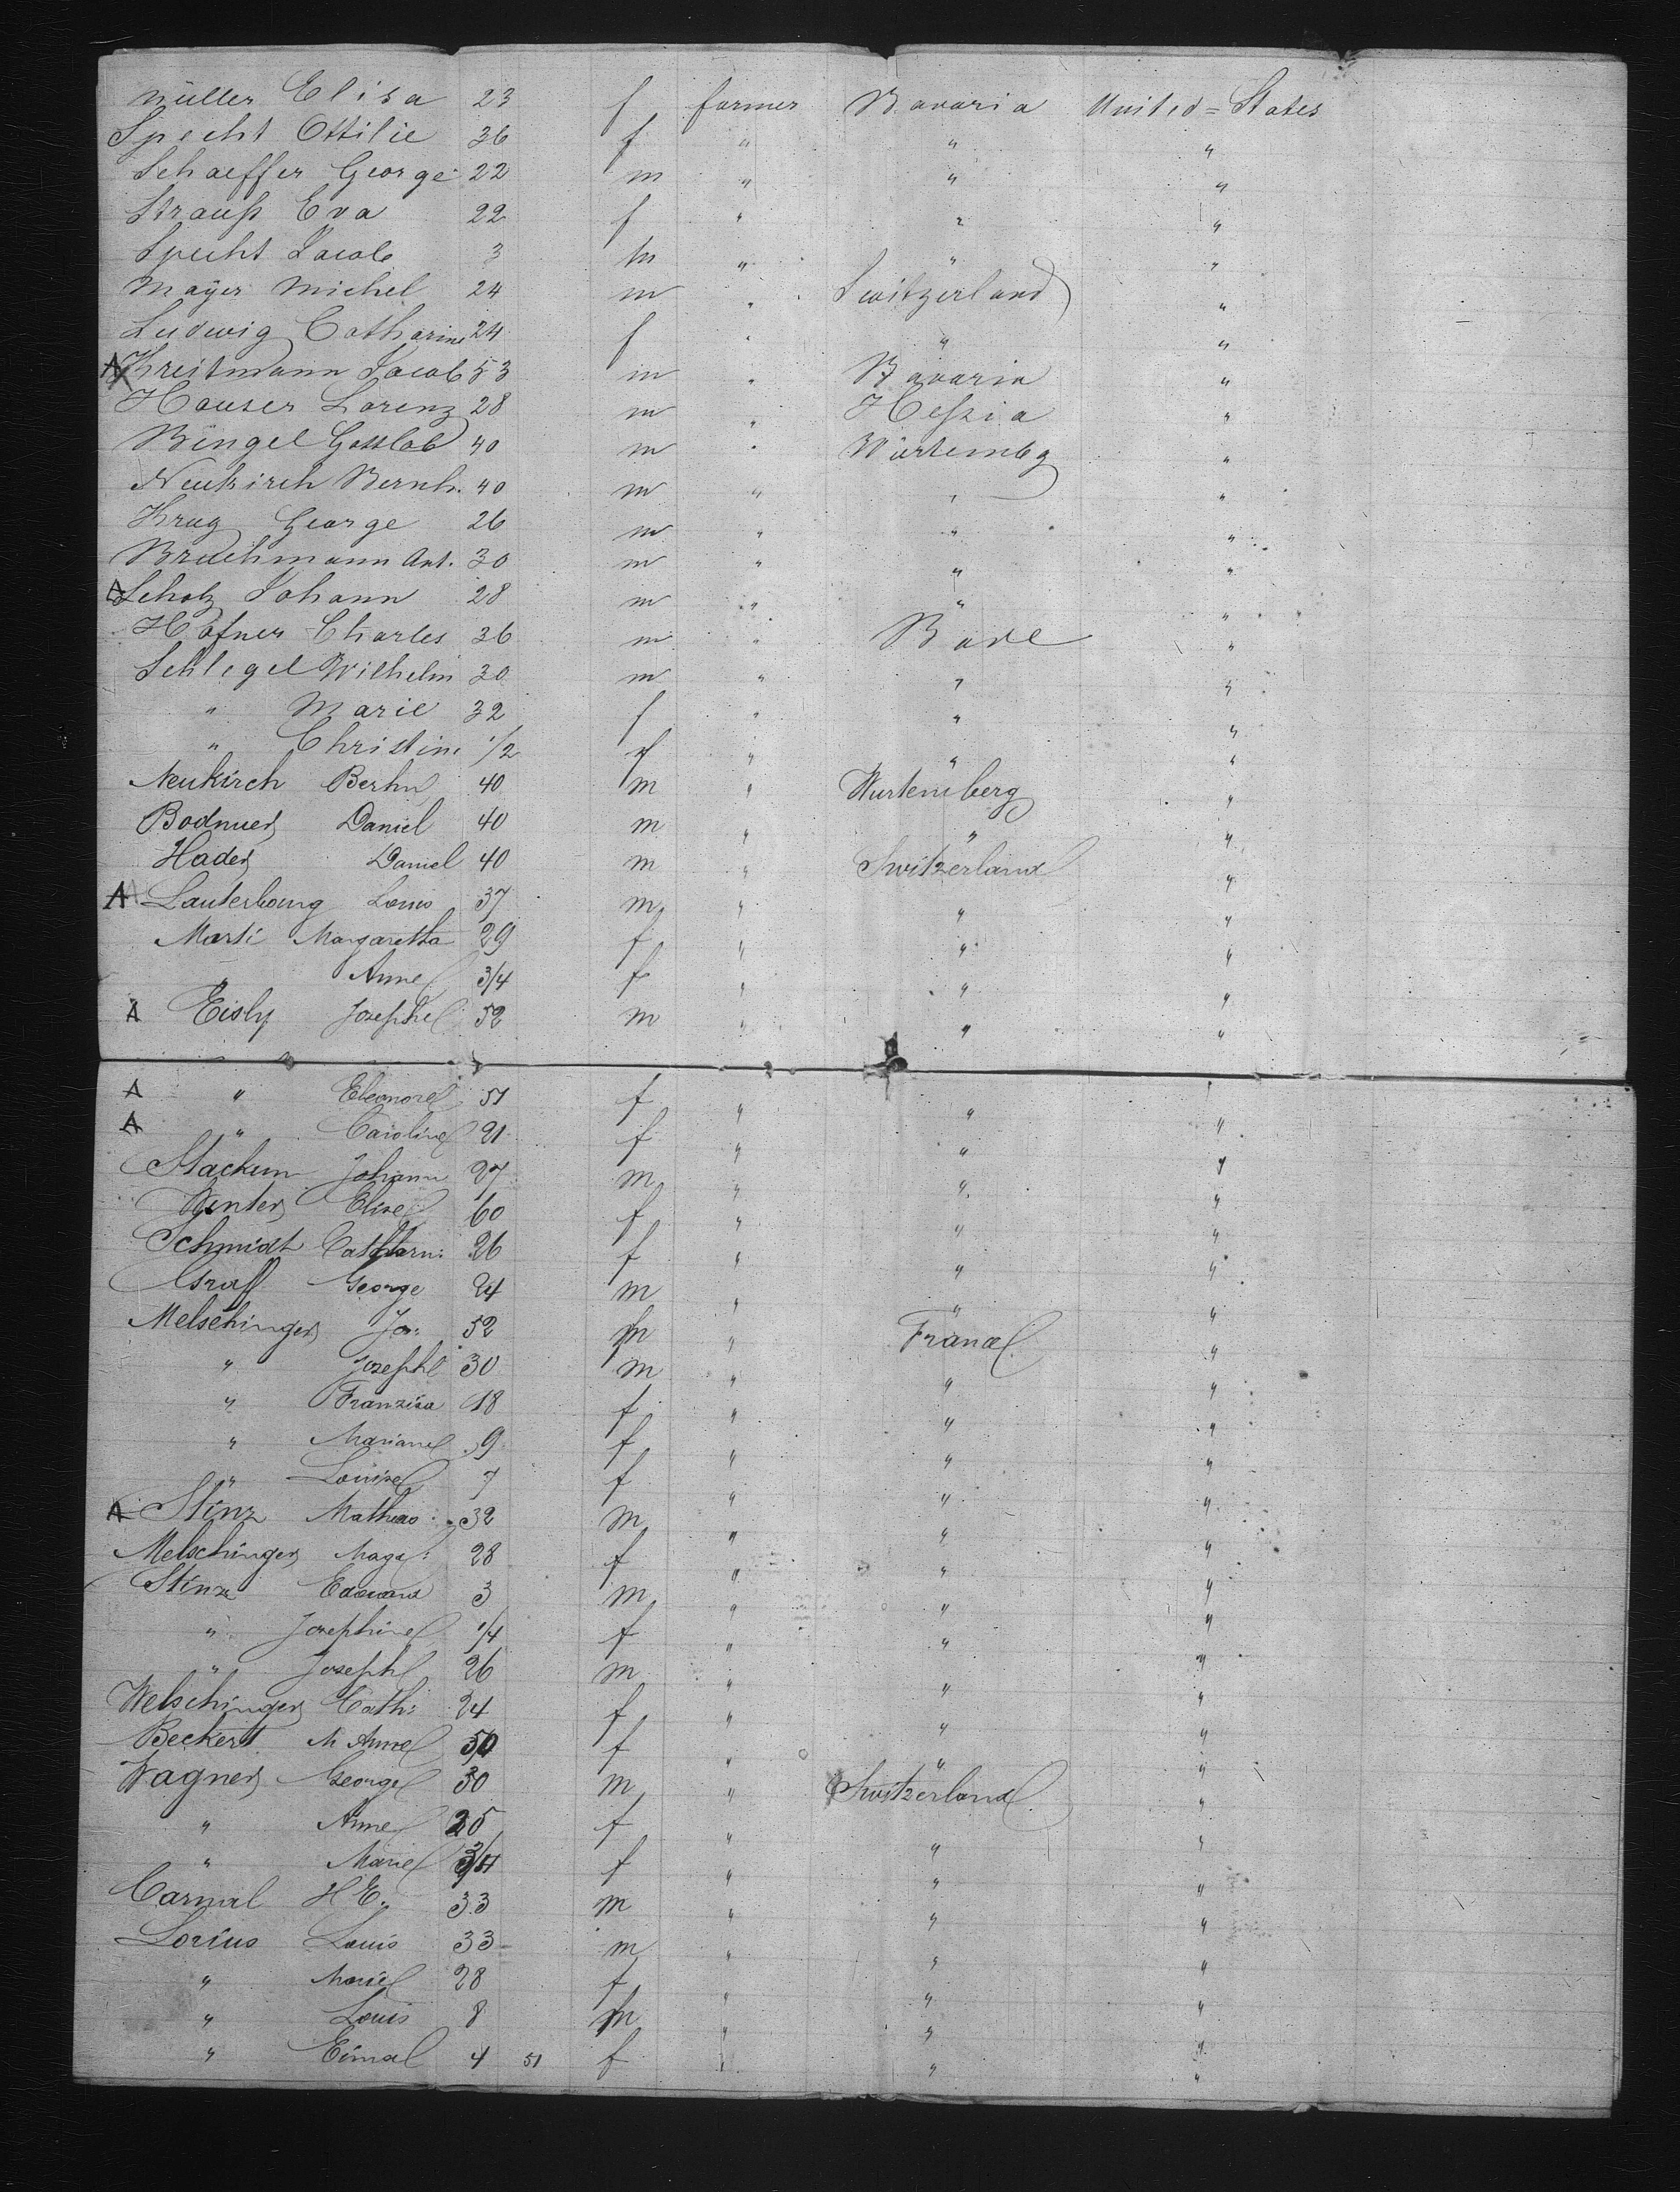 Müller Elisa 23 f farmer Bavaria United=States
Specht Ottilie 36 f " " "
Schaeffer George 22 m " " "
Strauß Eva 22 f " " "
Specht Jacob 3 m " " "
Mayer Michel 24 m " Switzerland "
Ludwig Catharine 24 f " " "
A Kreitmann Jacob 53 m " Bavaria "
Hauser Lorenz 28 m " Heßia "
Bingel Gottlob 40 m " Würtembg "
Neukirch Bernh. 40 m " " "
Krug George 26 m " " "
Bruchmann Ant. 30 m " " "
A Scholz Johann 28 m " " "
Hafner Charles 36 m " Bade "
Schlegel Wilhelm 30 m " " "
" Marie 32 f " " "
" Christine 1/2 f " " "
Neukirch Berhn 40 m " Wurtemberg "
Bodmer Daniel 40 m " " "
Hader Daniel 40 m " Switzerland "
A Lauterbourg Louis 37 m " " "
Marti Margaretta 29 f " " "
" Anne 3/4 f " " "
A Eisly Josephe 52 m " " "
A " Eleonore 51 f " " "
A " Caroline 21 f " " "
Stackum Johann 27 m " " "
Winter Elise 60 f " " "
Schmidt Catharn: 26 f " " "
Graff George 24 m " " "
Melschinger Jos: 52 m " France "
" Josephe 30 m " " "
" Franzisa 18 f " " "
" Mariane 9 f " " "
" Louise 7 f " " "
A Stinz Mathias 32 m " " "
Melschinger Magd: 28 f " " "
Stinz Edouard 3 m " " "
" Josephine 1/4 f " " "
" Joseph 26 m " " "
Welschinger Cath: 24 f " " "
Beckert M Anne 50 f " " "
Wagner George 30 m " Switzerland "
" Anne 25 f " " "
" Marie 3/4 f " " "
Carnal H E. 33 m " " "
Lorius Louis 33 m " " "
" Marie 28 f " " "
" Louis 8 m " " "
" 4 51 f " " "